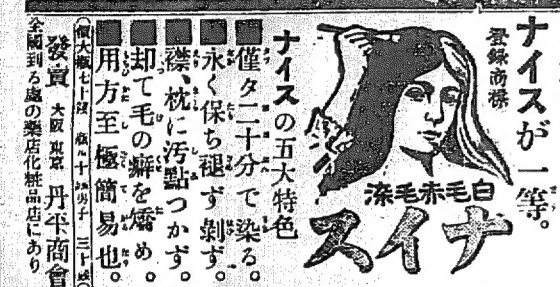 ナイスが一等。
登録商標
白毛赤毛染
ナイス
ナイスの五大特色
■僅々二十分で染る。
■永く保ち褪ず剥ず。
■襟、枕に汚點つかず。
■却て毛の癖を矯め。
■用方至極簡易也。
發賣 大阪 東京 丹平商會
全國到る處の藥店化粧品店にあり